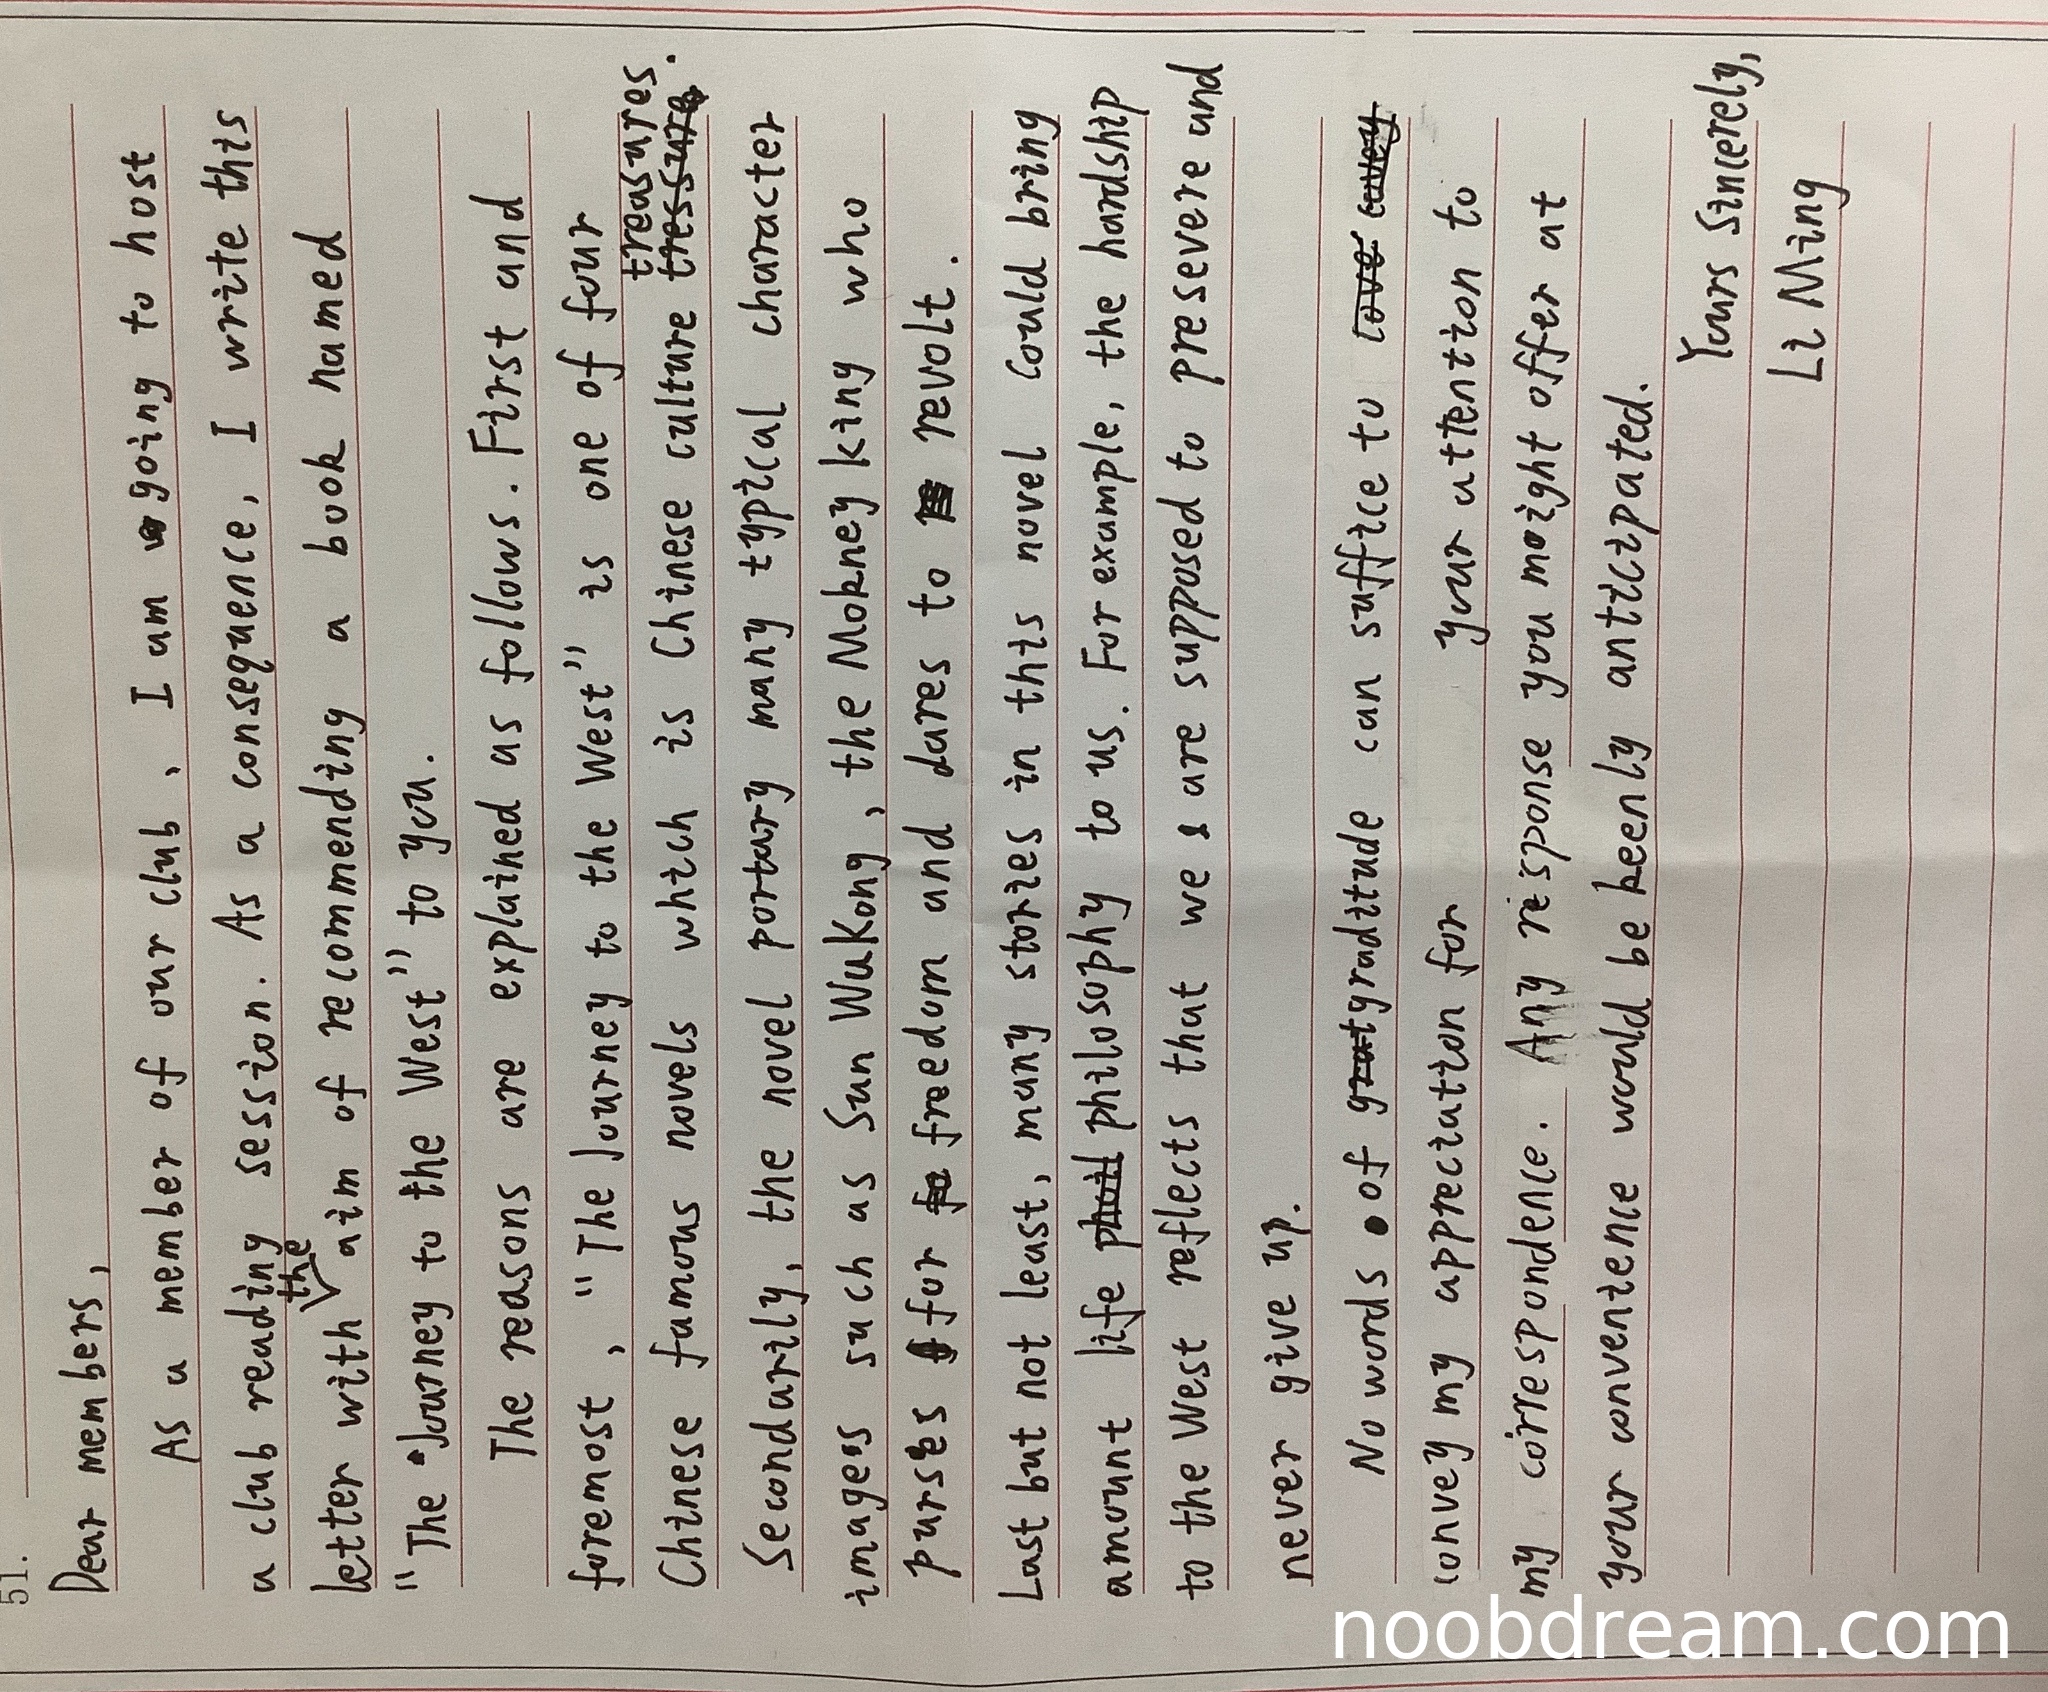 51.
Dear members,
As a member of our club, I am going to host
a club reading session. As a consequence, I write this
letter with the aim of recommending a book named
"The Journey to the West" to you.
The reasons are explained as follows. First and
foremost, "The Journey to the West" is one of four
Chinese famous novels whitch is Chinese culture treasures.
Secondarily, the novel portary many typical character
images such as Sun WuKong, the Mokney king who
purses for freedom and dares to revolt.
Last but not least, many stories in this novel could bring
amount life philosophy to us. For example, the hardship
to the West reflects that we are supposed to presevere and
never give up.
No words of graditude can suffice to
convey my appreciation for your attention to
my correspondence. Any response you might offer at
your convenience would be keenly anticipated.
Yours Sincerely,
Li Ming
noobdream.com